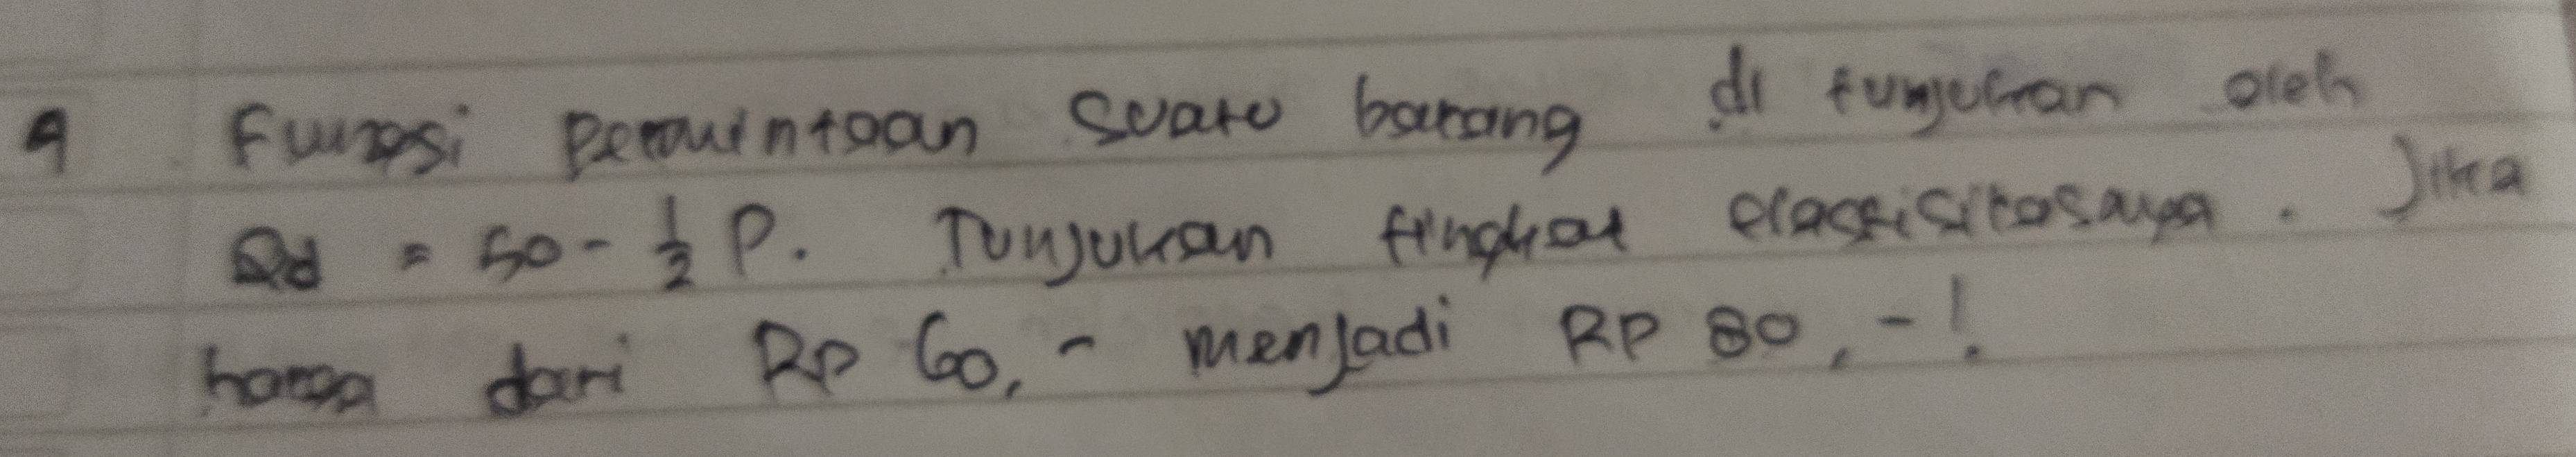 4 Fungsi permintaan suatu barang di tunjukan oleh
Qd = 50 - 1/2 P. Tunjukan tingkat elastisitasanya. Jika
harga dari Rp 60,- menjadi Rp 80,-!